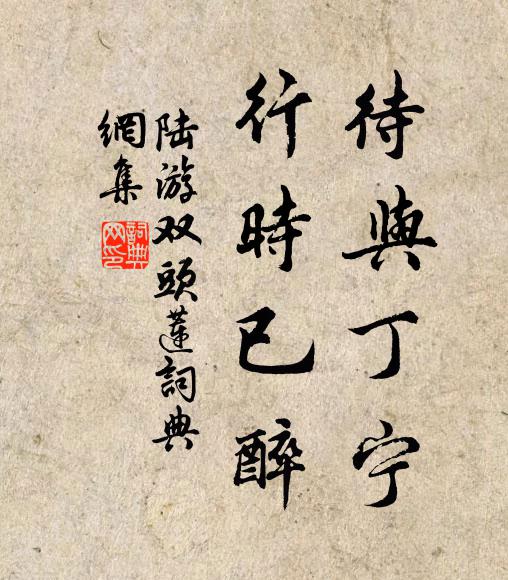 待與丁宁
行時已醉
陆游双頭蓮詞典
網集
詞典
网印